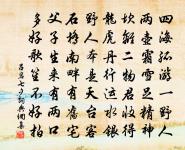 四海孤游一野人
两壶霜雪足精神
坎离二物君收得
龙虎丹行运水银
野人本是天台客
石桥南畔有旧宅
父子生来有两口
多好歌笙不好拍